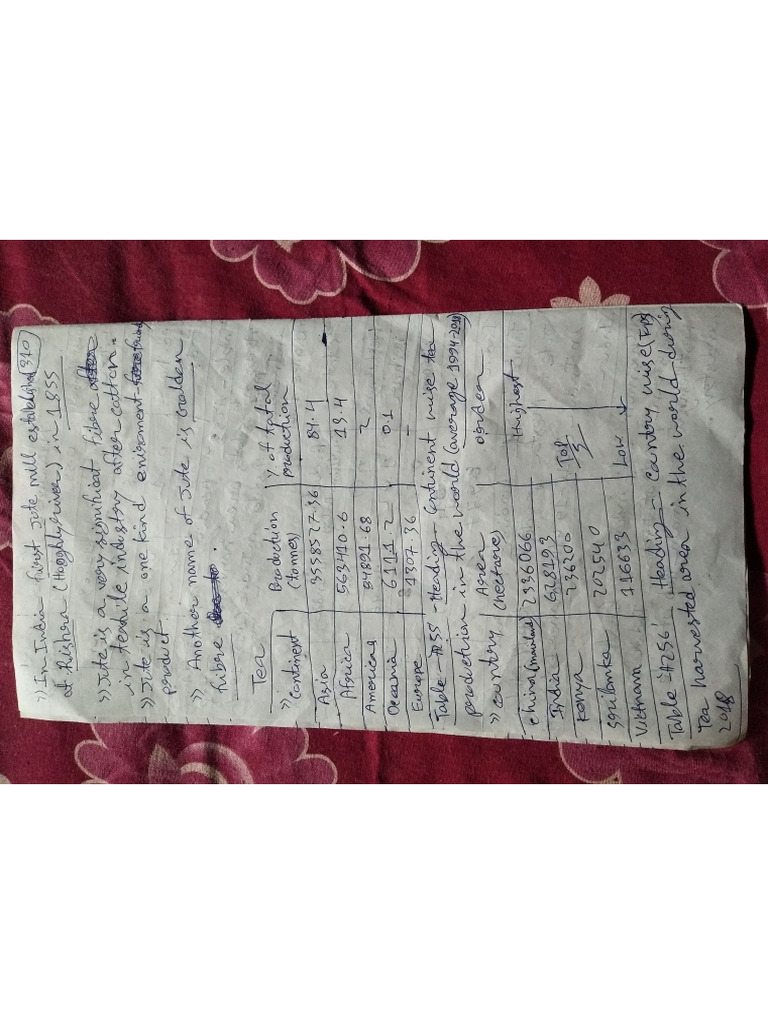 ») In India first Jute mill established (310)
at Rishra (Hooghly river) in 1855
») Jute is a very significat fibre
in textile industry after cotton.
») Jute is a one kind enviroment friendly
product.
») Another name of Jute is Golden
fibre.
Tea
») Continent Production (tonnes) % of total production
Asia 3558527.36 84.4
Africa 563410.6 13.4
Americas 84891.68 2
Oceania 6111.2 0.1
Europe 1307.36 -
Table #255 - Heading - Continent wise tea
production in the world (average 1994-2018)
») country Area (hectares) order
china (mainland) 2336066 Highest
India 628193
Kenya 236200 Top 5
Sri lanka 202540
Vietnam 116633 Low
Table #256 Heading - Country wise (Top 5)
Tea harvested area in the world during
2018